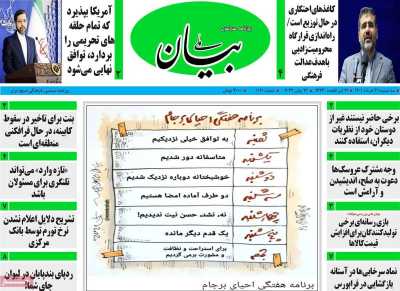 آمریکا بپذیرد
که تمام حلقه
های تحریمی را
بردارد، توافق
نهایی می‌شود
۲
بیان
کاغذهای احتکاری
در حال توزیع است/
راه‌اندازی قرارگاه
محرومیت‌زدایی
با هدف عدالت
فرهنگی
۴
برخی حاضر نیستند غیر از
دوستان خود از نظریات
استفاده کنند
وجه مشترک عروسک‌ها
با صلح، اندیشیدن
و آرامش است
بازی رسانه‌ای برخی
تولیدکنندگان برای افزایش
قیمت کالاها
نماد سرخابی‌ها در آستانه
بازگشایی در فرابورس
برنامه هفتگی احیا کا برجام
شنبه
به توافق خیلی نزدیکیم
یکشنبه
متاسفانه دور شدیم
دوشنبه
خوشبختانه دوباره نزدیک شدیم
سه‌شنبه
دو طرف آماده امضا هستیم
چهارشنبه
نه، نشد، حسن نیت ندیدیم!
پنجشنبه
یک قدم دیگر مانده
جمعه
برای استراحت و نظافت
و مشورت برمی گردیم
برنامه هفتگی احیای برجام
۲
بنت با تاخیر در سقوط
کابینه، در حال فرافکنی
است
۴
«تازه وارد» می‌تواند
تلنگری برای مسئولان
باشد
تشریح دلایل اعلام نشدن
نرخ تورم توسط بانک
مرکزی
۸
ردپای بندپایان در لیوان
چای شما!